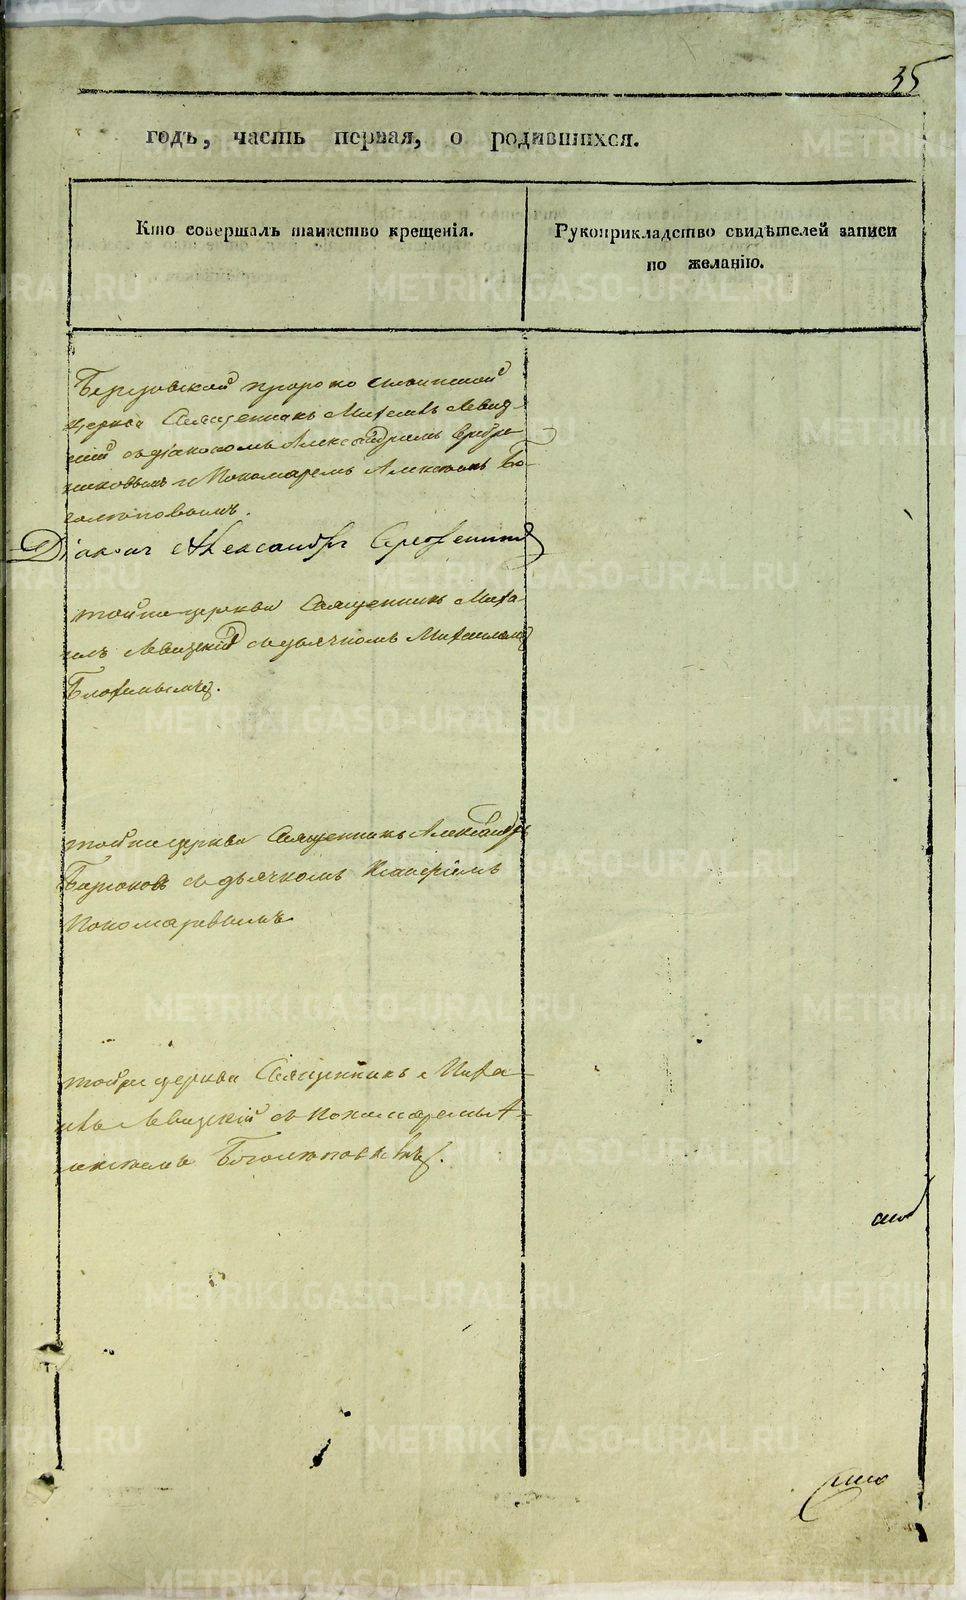 35
годъ, часть первая, о родившихся.
Кто совершалъ таинство крещенія.
Рукоприкладство свидѣтелей записи
по желанію.
Березовской пророко Ильинской
церкви Священникъ Михаилъ Левиц-
кій съ діакономъ Александромъ
и Пономаремъ Алексѣемъ Бо-
голѣповымъ.
Діаконъ Александръ
тойже церкви Священникъ Миха-
илъ Левицкій съ дьячкомъ Михаиломъ
тойже церкви Священникъ Александръ
съ дьячкомъ
Пономаревымъ
тойже церкви Священникъ Миха-
илъ Левицкій съ пономаремъ А-
лексѣемъ Боголѣповымъ.
METRIKI.GASO-URAL.RU